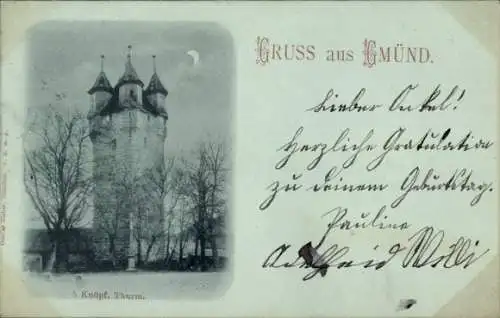 GRUSS aus GMÜND.
Lieber Onkel!
Herzliche Gratulation
zu deinem Geburtstag.
Pauline
Adelheid Willi
5 Knöpf. Thurm.